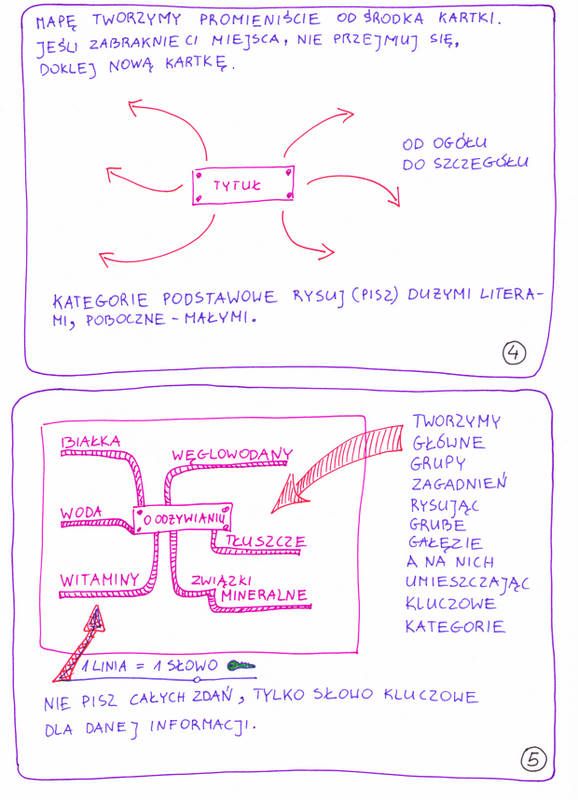 MAPĘ TWORZYMY PROMIENIŚCIE OD ŚRODKA KARTKI.
JEŚLI ZABRAKNIE CI MIEJSCA, NIE PRZEJMUJ SIĘ,
DOKLEJ NOWĄ KARTKĘ.
OD OGÓŁU
DO SZCZEGÓŁU
TYTUŁ
KATEGORIE PODSTAWOWE RYSUJ (PISZ) DUŻYMI LITERA-
MI, POBOCZNE - MAŁYMI.
4
BIAŁKA
WĘGLOWODANY
WODA
O ODŻYWIANIU
TŁUSZCZE
WITAMINY
ZWIĄZKI
MINERALNE
TWORZYMY
GŁÓWNE
GRUPY
ZAGADNIEŃ
RYSUJĄC
GRUBE
GAŁĘZIE
A NA NICH
UMIESZCZAJĄC
KLUCZOWE
KATEGORIE
1 LINIA = 1 SŁOWO
NIE PISZ CAŁYCH ZDAŃ, TYLKO SŁOWO KLUCZOWE
DLA DANEJ INFORMACJI.
5